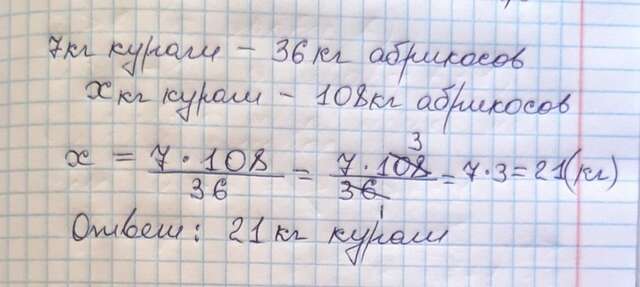 7кг кураги – 36 кг абрикосов
x кг кураги – 108кг абрикосов
x = 7·108/36 = 7·108/36 = 7·3=21(кг)
3
1
Ответ: 21 кг кураги